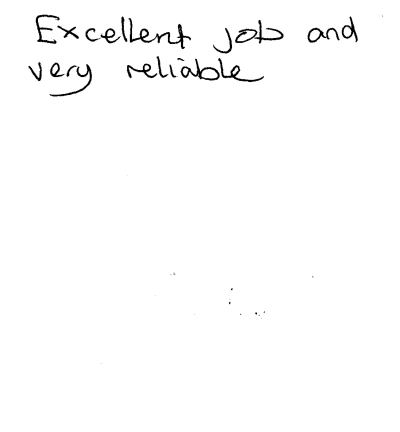 Excellent job and
very reliable